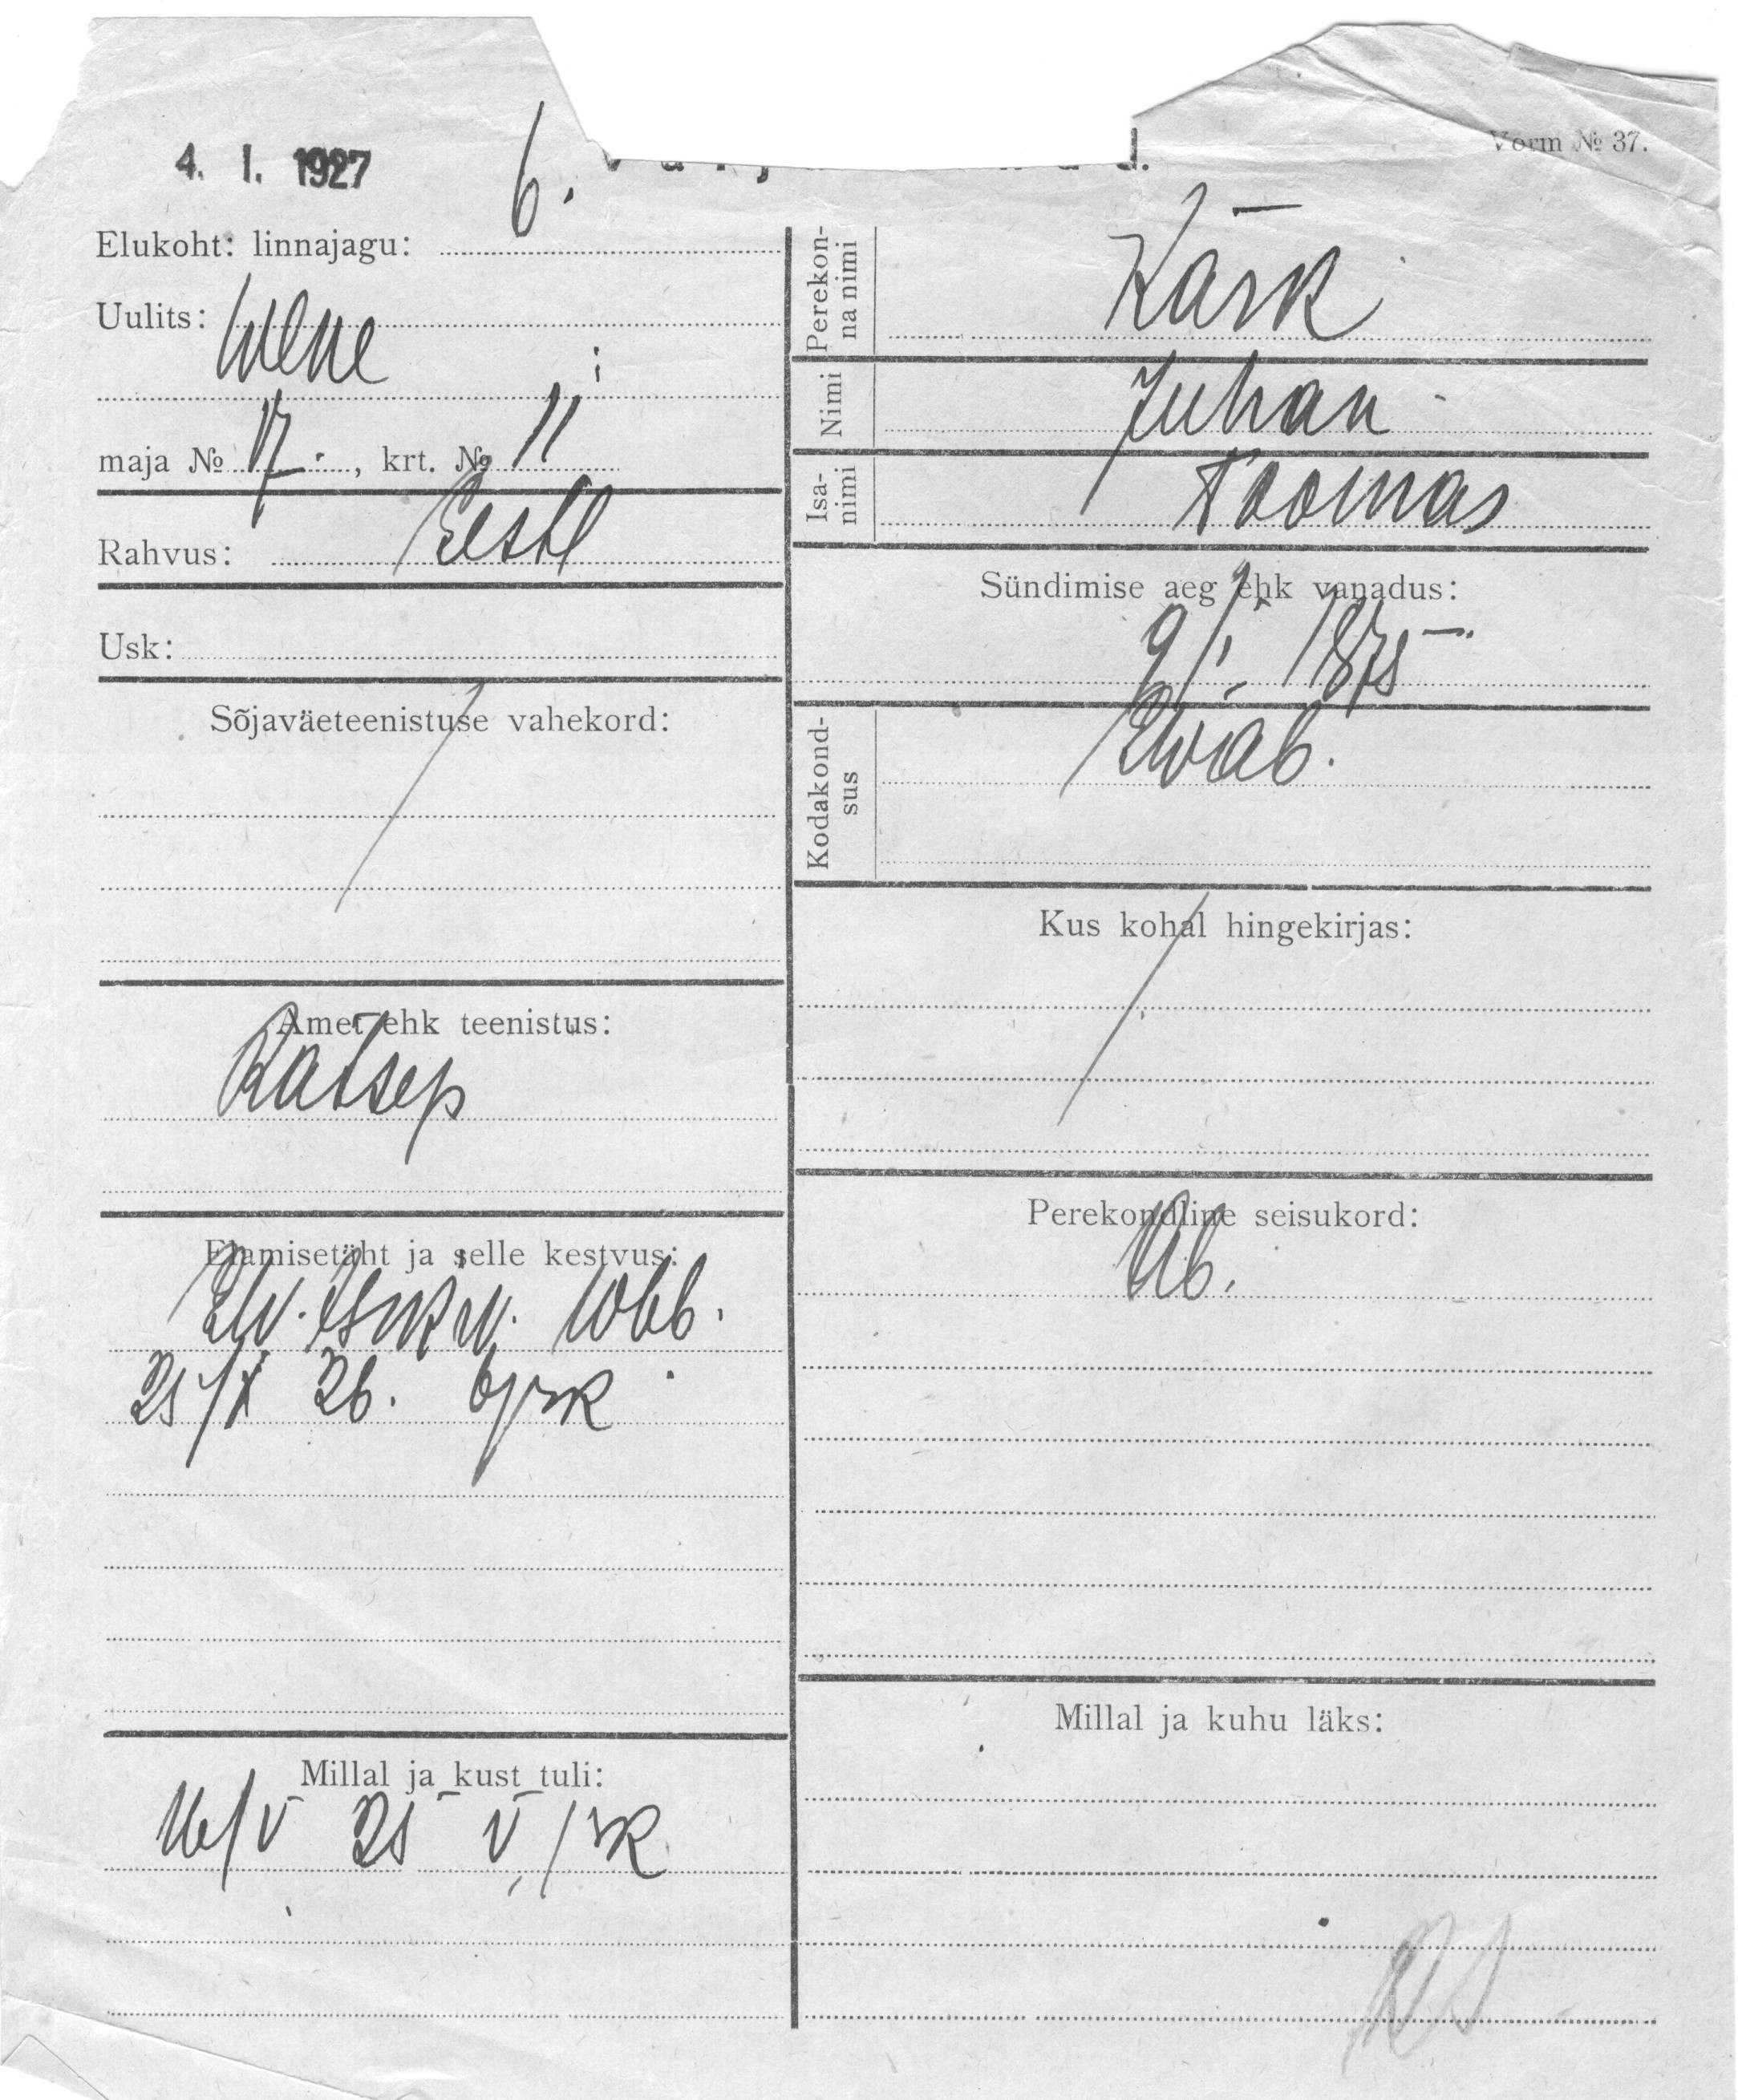 4. I. 1927
Vorm № 37.
Elukoht: linnajagu: 6.
Uulits: Wene
maja № 17., krt. № 11
Rahvus: Eestl
Usk:
Sõjaväeteenistuse vahekord:
Amet ehk teenistus:
Rätsep
Elamisetäht ja selle kestvus:
26. 6 jrk
Millal ja kust tuli:
16/V 25 V/rk
Perekon-
na nimi
Kärk
Nimi Juhan
Isa-
nimi
Toomas
Sündimise aeg ehk vanadus:
9/I. 1875
Kodakond-
sus
Ewab.
Kus kohal hingekirjas:
Perekondline seisukord:
Ab.
Millal ja kuhu läks: